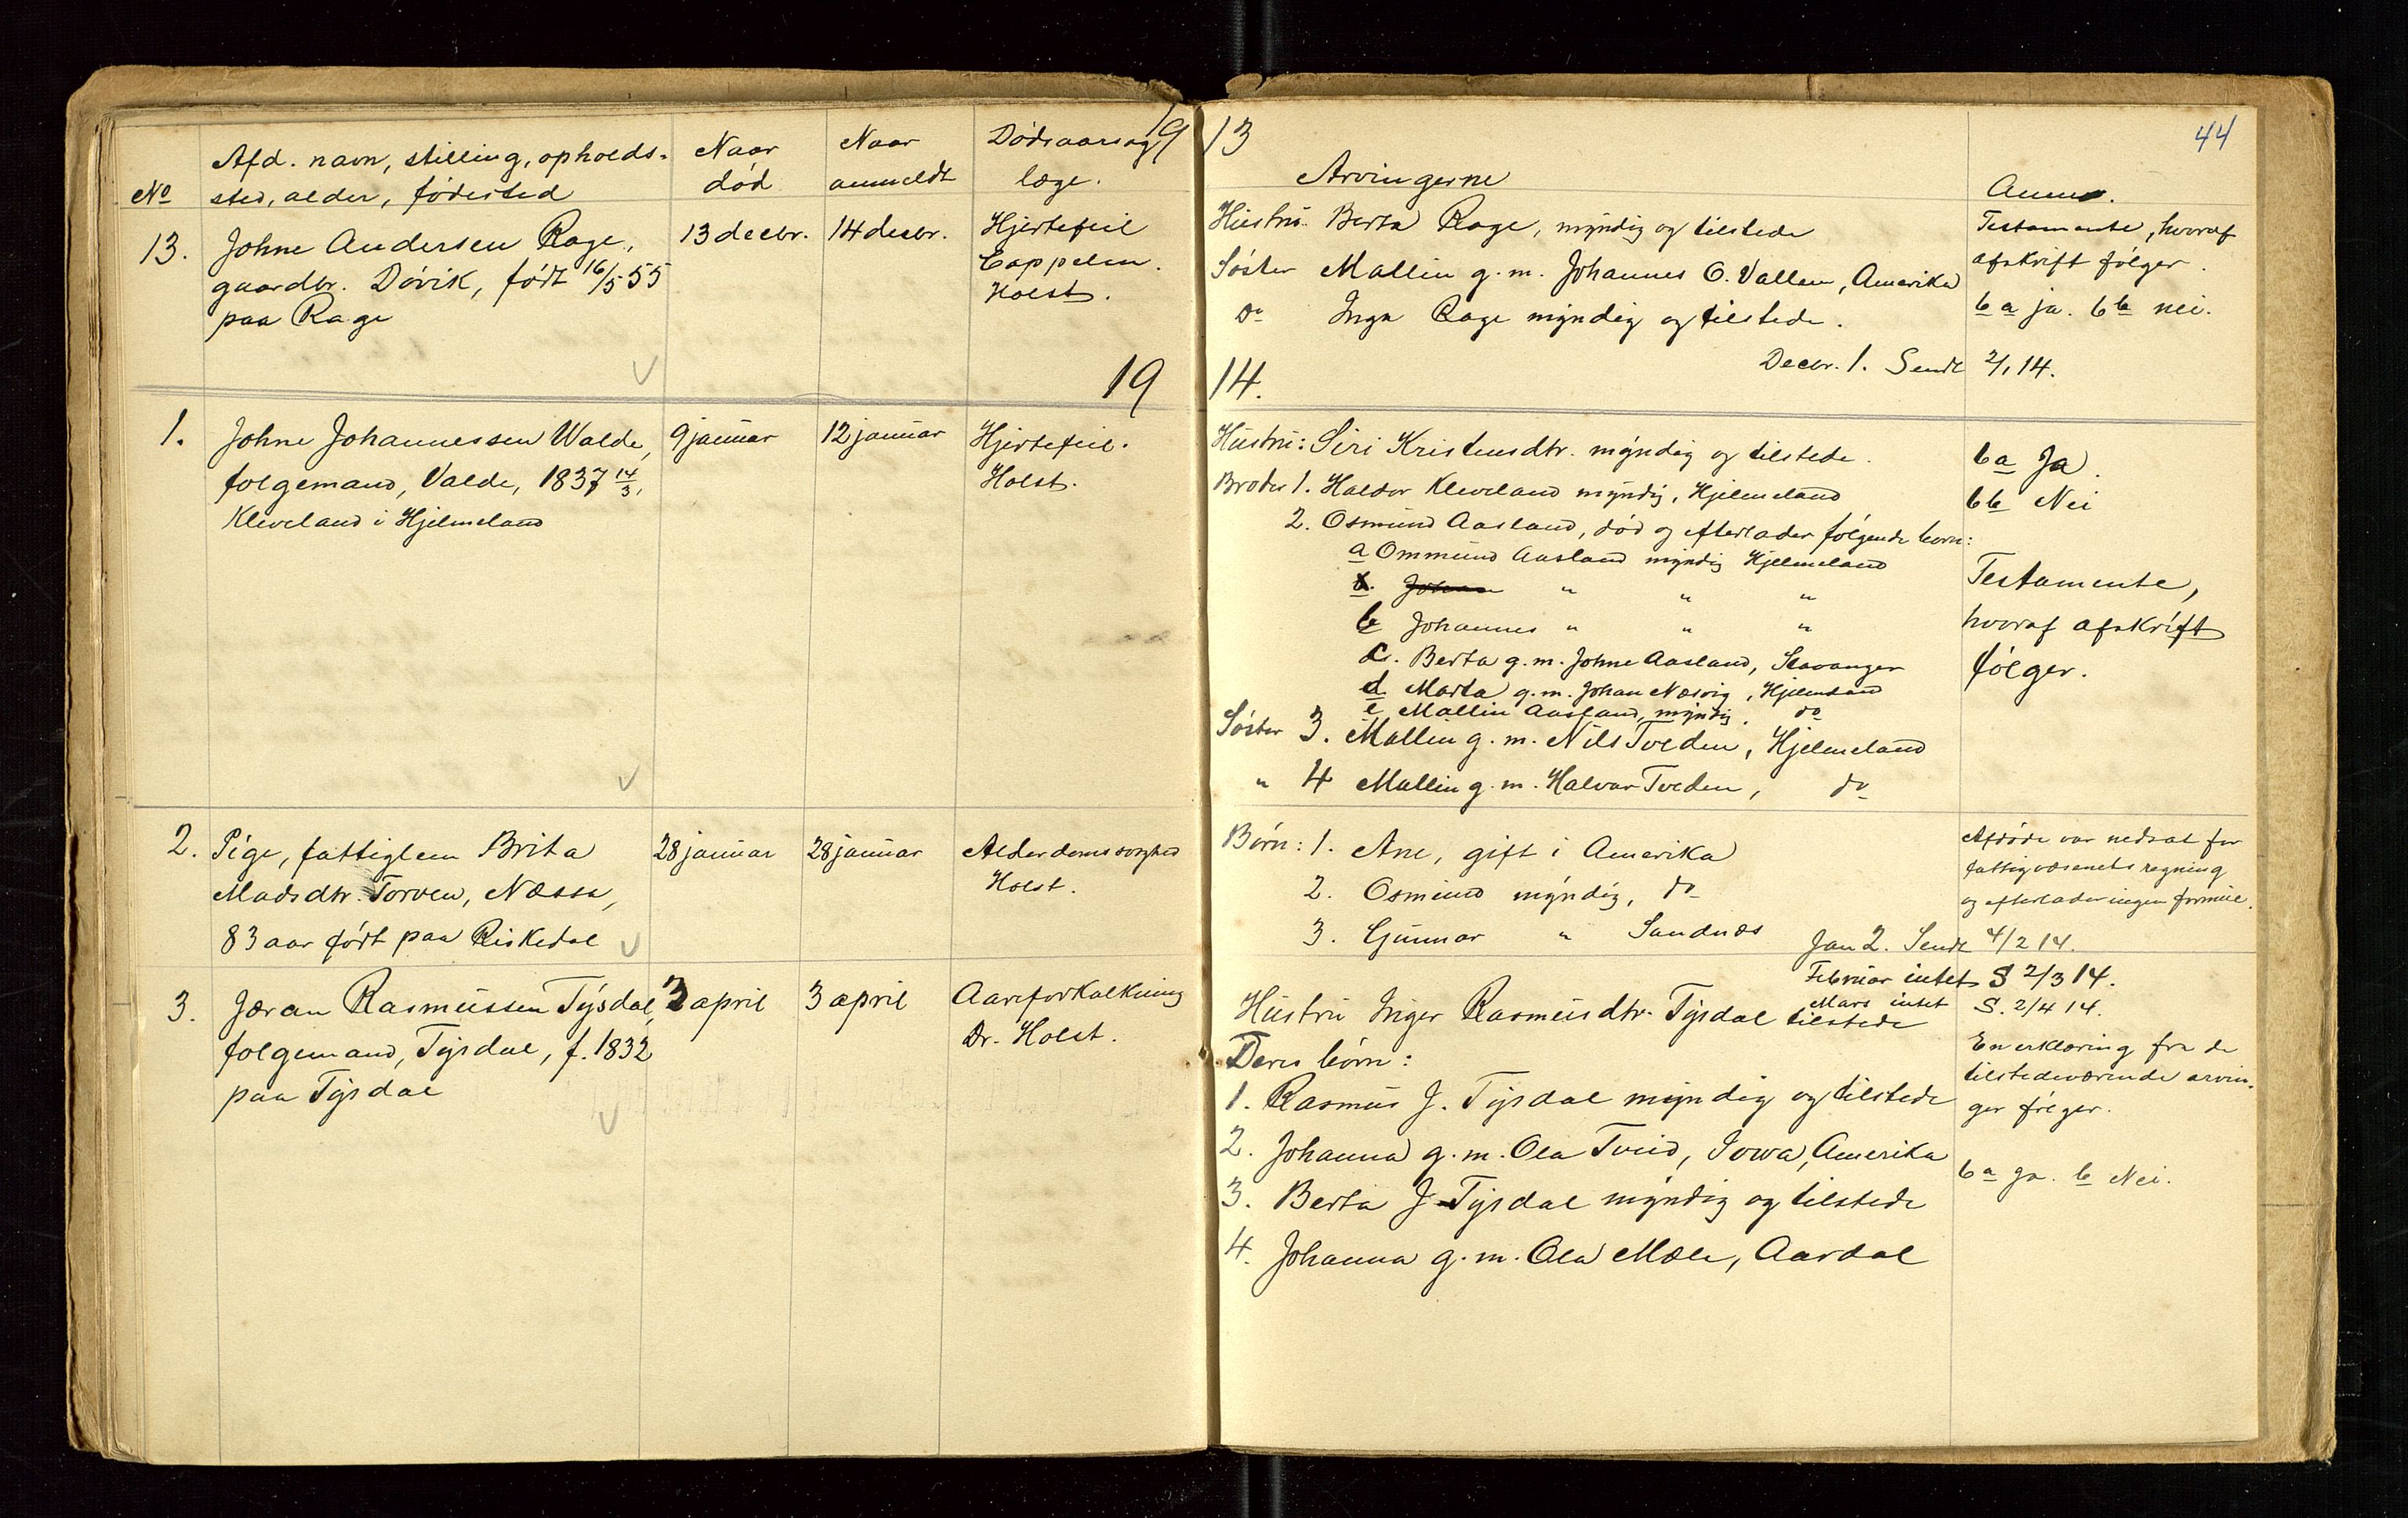 1913
44
No Afd. navn, stilling, opholds-
sted, alder, fødested
Naar
død
Naar
anmeldt
Dødsaarsag
læge.
Arvingerne
Anm.
13. Johne Andersen Rage,
gaardbr. Døvik, født 16/5 55
paa Rage
13 decbr.
14 decbr.
Hjertefeil
Cappelen.
Holst.
Hustru. Berta Rage, myndig og tilstede
Søster Mallin g. m. Johannes O. Vallen, Amerika
Do Inga Rage myndig og tilstede.
Testamente, hvoraf
afskrift følger.
6 a ja. 6 b nei.
Decbr. 1. Sendt 2/1 14.
1914.
1. Johne Johannessen Walde,
folgemand, Valde, 1837 14/3,
Kleveland i Hjelmeland
9 januar
12 januar
Hjertefeil.
Holst.
Hustru: Siri Kristensdtr. myndig og tilstede.
Broder 1. Haldor Kleveland myndig, Hjelmeland
2. Osmund Aasland, død og efterlader følgende børn:
a Ommund Aasland myndig Hjelmeland
b. Johan " " "
b Johannes " " "
c. Berta g. m. Johne Aasland, Stavanger
d. Marta g. m. Johan Næsvig, Hjelmeland
e Mallin Aasland, myndig. do
Søster 3. Mallin g. m. Nils Tveden, Hjelmeland
" 4 Mallin g. m. Halvar Tveden, do
6 a Ja.
6 b Nei
Testamente,
hvoraf afskrift
følger.
2. Pige, fattiglem Brita
Madsdtr. Torven, Næssa,
83 aar født paa Riskedal
28 januar
28 januar
Alderdomssvaghed
Holst.
Børn: 1. Ane, gift i Amerika
2. Osmund myndig, do
3. Gunnar " Sandnæs
Afdøde var nedsat for
fattigvæsenets regning
og efterlader ingen formue.
Jan 2. Sendt 4/2 14.
Februar intet S 2/3 14.
Mars intet S. 2/4 14.
3. Jøran Rasmussen Tysdal,
folgemand, Tysdal, f. 1832
paa Tysdal
3 april
3 april
Aareforkalkning
Dr. Holst.
Hustru Inger Rasmusdtr. Tysdal tilstede
Deres børn:
1. Rasmus J. Tysdal myndig og tilstede
2. Johanna g. m. Ola Tveid, Iowa, Amerika
3. Berta J Tysdal myndig og tilstede
4. Johanna g. m. Ola Mæle, Aardal
En erklæring fra de
tilstedeværende arvin-
ger følger.
6 a ja. b Nei.